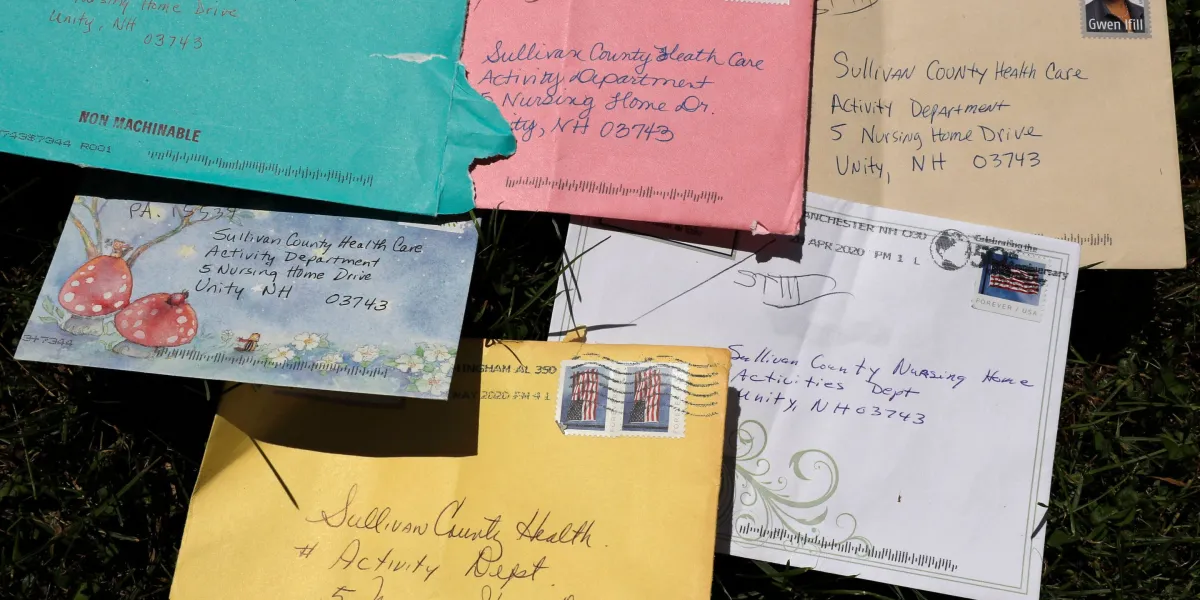 Nursing Home Drive
Unity, NH
03743
NON MACHINABLE
R001
Sullivan County Heath Care
Activity Department
5 Nursing Home Dr.
ity, NH 03743
Gwen Ifill
Sullivan County Health Care
Activity Department
5 Nursing Home Drive
Unity, NH 03743
PA. 15537
Sullivan County Health Care
Activity Department
5 Nursing Home Drive
Unity NH 03743
ANCHESTER NH 030
APR 2020 PM 1 L
Celebrating the
50th
Anniversary
FOREVER / USA
Sullivan County Nursing Home
Activities Dept
Unity, NH 03743
INGHAM AL 350
MAY 2020 PM 4 L
Sullivan County Health
# Activity Dept.
5